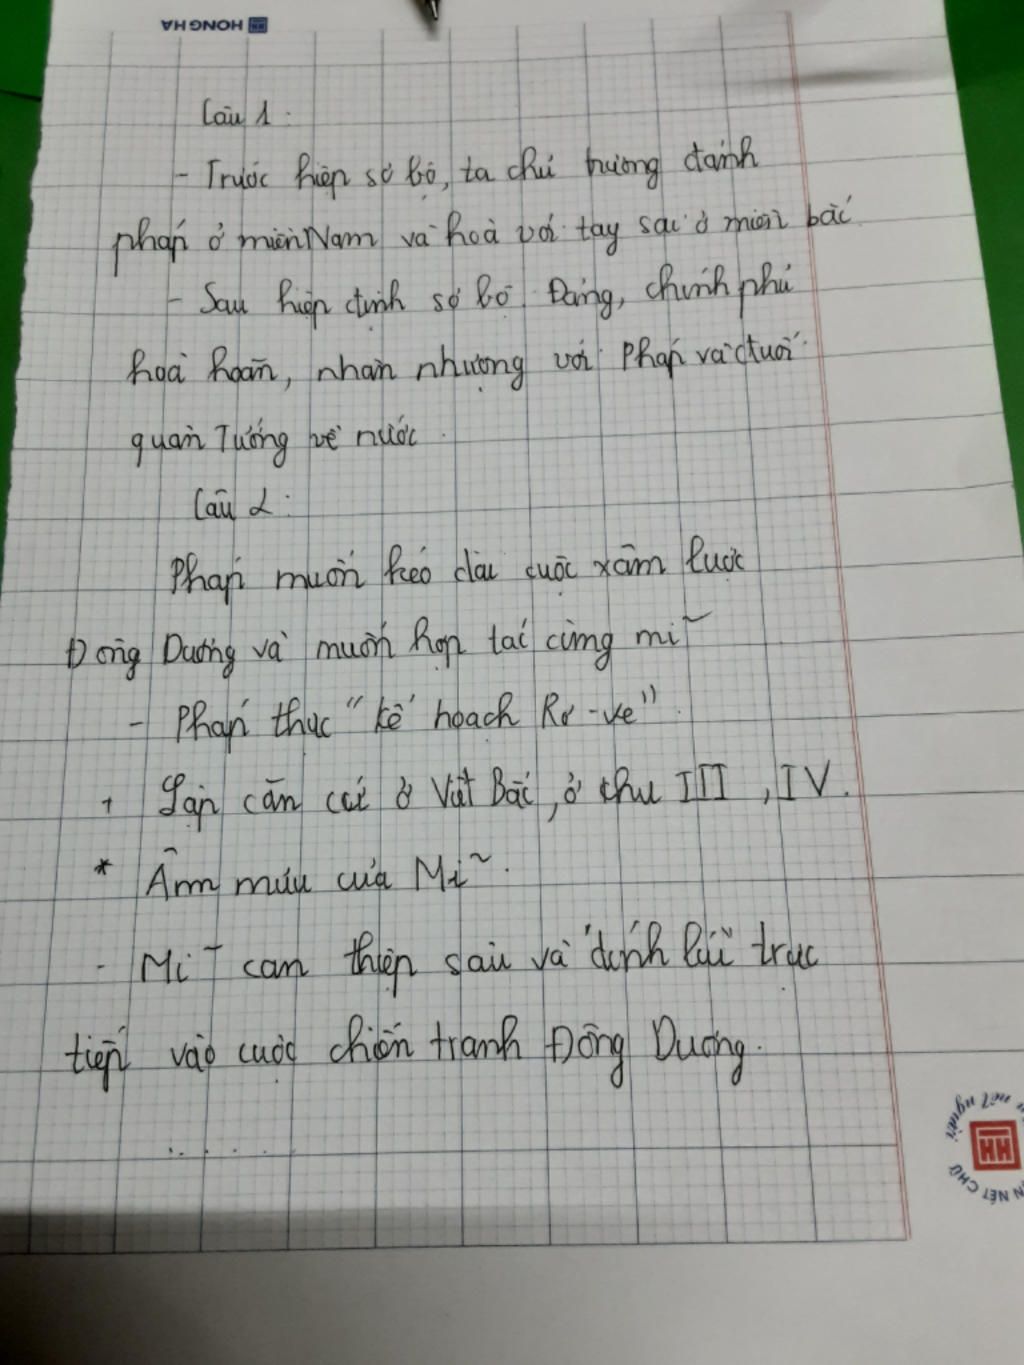 HONG HA
Câu 1:
- Trước hiệp sơ bộ, ta chủ trương đánh
pháp ở miền Nam và hoà với tay sai ở miền bắc
- Sau hiệp định sơ bộ Đảng, chính phủ
hoà hoãn, nhân nhượng với Pháp và đuổi
quân Tưởng về nước.
Câu 2:
Pháp muốn kéo dài cuộc xâm lược
Đông Dương và muốn hợp tác cùng mĩ
- Pháp thực "kế hoạch Rơ-ve".
+ Lập căn cứ ở Việt Bắc, ở khu III, IV.
* Âm mưu của Mĩ.
- Mĩ can thiệp sâu và "dính líu" trực
tiếp vào cuộc chiến tranh Đông Dương.
.....
nết người
HH
NÉT CHỮ